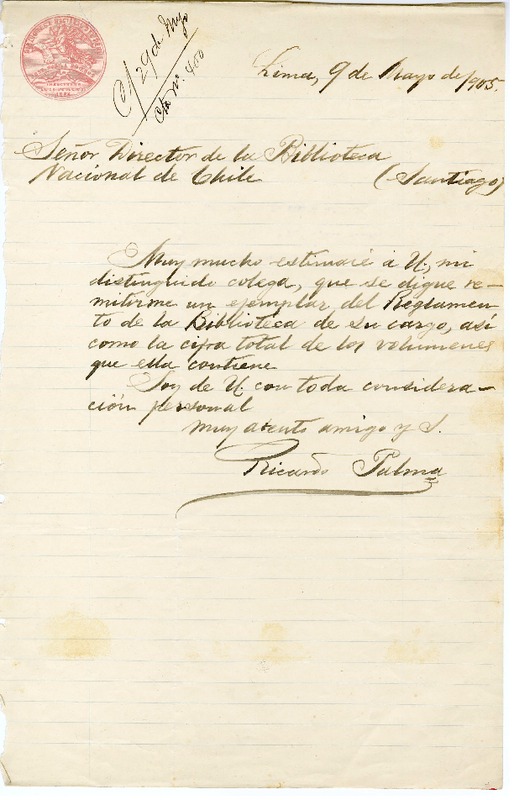 C/ 29 de Mayo
Cta Nº. 400
Lima, 9 de Mayo de 1905.
Señor Director de la Biblioteca
Nacional de Chile (Santiago)
Muy mucho estimaré á U., mi
distinguido colega, que se digne re-
mitirme un ejemplar del Reglamen-
to de la Biblioteca de su cargo, así
como la cifra total de los volúmenes
que ella contiene
Soy de U. con toda considera-
ción personal
muy atento amigo y S.
Ricardo Palma